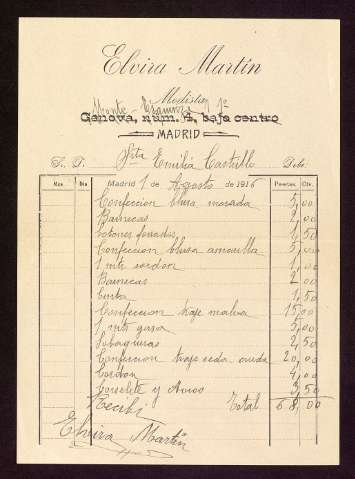 Elvira Martín
Modista
Génova, núm. 4, bajo centro
MADRID
Srta Emilia Castillo Debe.
Mes Día Madrid 1 de Agosto de 1916 Pesetas. Cts.
Confeccion blusa morada 5,00
Barnecas 2,00
botones forrados 1,50
Confeccion blusa amarilla 5,00
1 mtr cordón 1,00
Barnecas 2,00
Cinta 1,50
Confeccion traje malva 15,00
1 mtr gasa 5,00
Sobaqueras 2,50
Confeccion traje seda cruda 20,00
Cordon 4,00
Corselete y Avios 3,50
Recibí Total 68,00
Elvira Martín